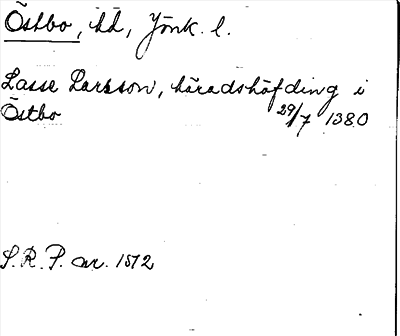 Östbo, hd, Jönk. l.
Lasse Larsson, häradshöfding i
Östbo 29/7 1380
S.R.P. nr. 1572